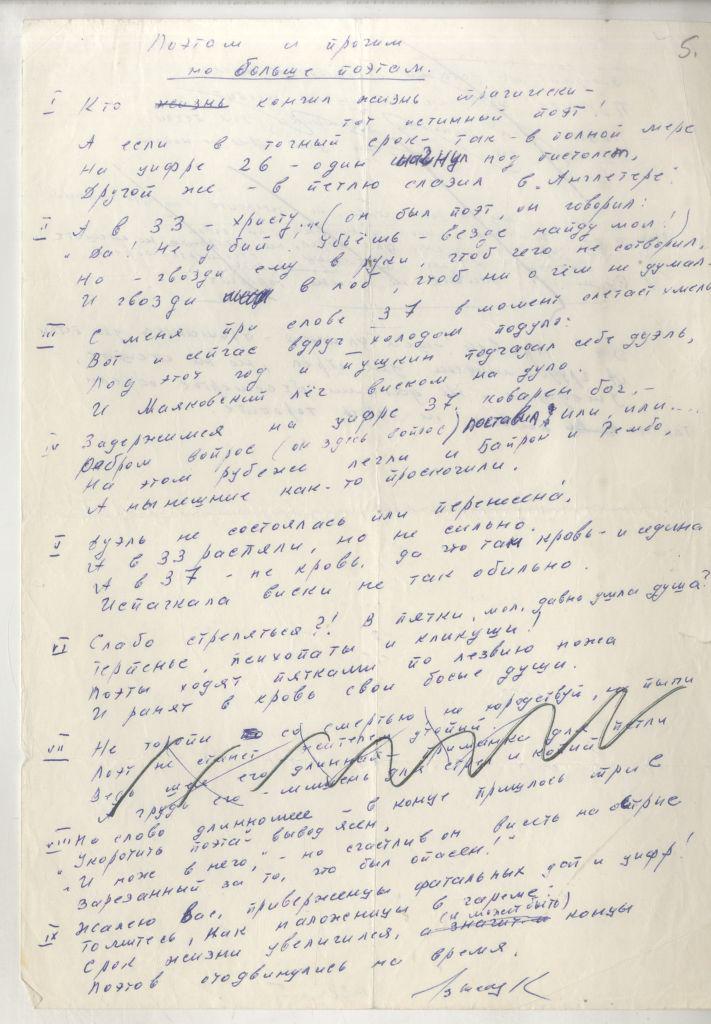 5.
Поэтам и прочим
но больше поэтам.
I Кто жизнь кончил жизнь трагически –
тот истинный поэт!
А если в точный срок – так – в полной мере
На цифре 26 – один шагнул под пистолет,
Другой же – в петлю слазил в „Англетере"
II А в 33 – Христу... (он был поэт, он говорил:
„Да! Не убий! Убьёшь – везде найду мол!)
Но – гвозди ему в руки, чтоб чего не сотворил,
И гвозди в лоб, чтоб ни о чём не думал.
III С меня при слове 37 в момент слетает хмель
Вот и сейчас вдруг холодом подуло:
Под этот год и Пушкин подгадал себе дуэль,
И Маяковский лёг виском на дуло.
IV Задержимся на цифре 37. Коварен бог, –
Ребром вопрос (он здесь вопрос) поставил: или, или....
На этом рубеже легли и Байрон и Рембо,
А нынешние как-то проскочили.
V Дуэль не состоялась или перенесена,
А в 33 распяли, но не сильно.
А в 37 – не кровь, да что там кровь – и седина
Испачкала виски не так обильно.
VI Слабо стреляться?! В пятки, мол, давно ушла душа?
Терпенье, психопаты и кликуши!
Поэты ходят пятками по лезвию ножа
И ранят в кровь свои босые души.
VII Не торопи со смертью, не юродствуй,
Поэт не
его длинный – приманка для петли
А грудь его – мишень для стрел и копий
VIII На слово длинношее – в конце пришлось три Е
„Укоротить поэта" вывод ясен,
„И нож в него," – но счастлив он висеть на острие
Зарезанный за то, что был опасен!"
IX Жалею Вас, приверженцы фатальных дат и цифр!
Томитесь, как наложницы в гареме:
Срок жизни увеличился, а значит и (и может быть) концы
Поэтов отодвинулись на время.